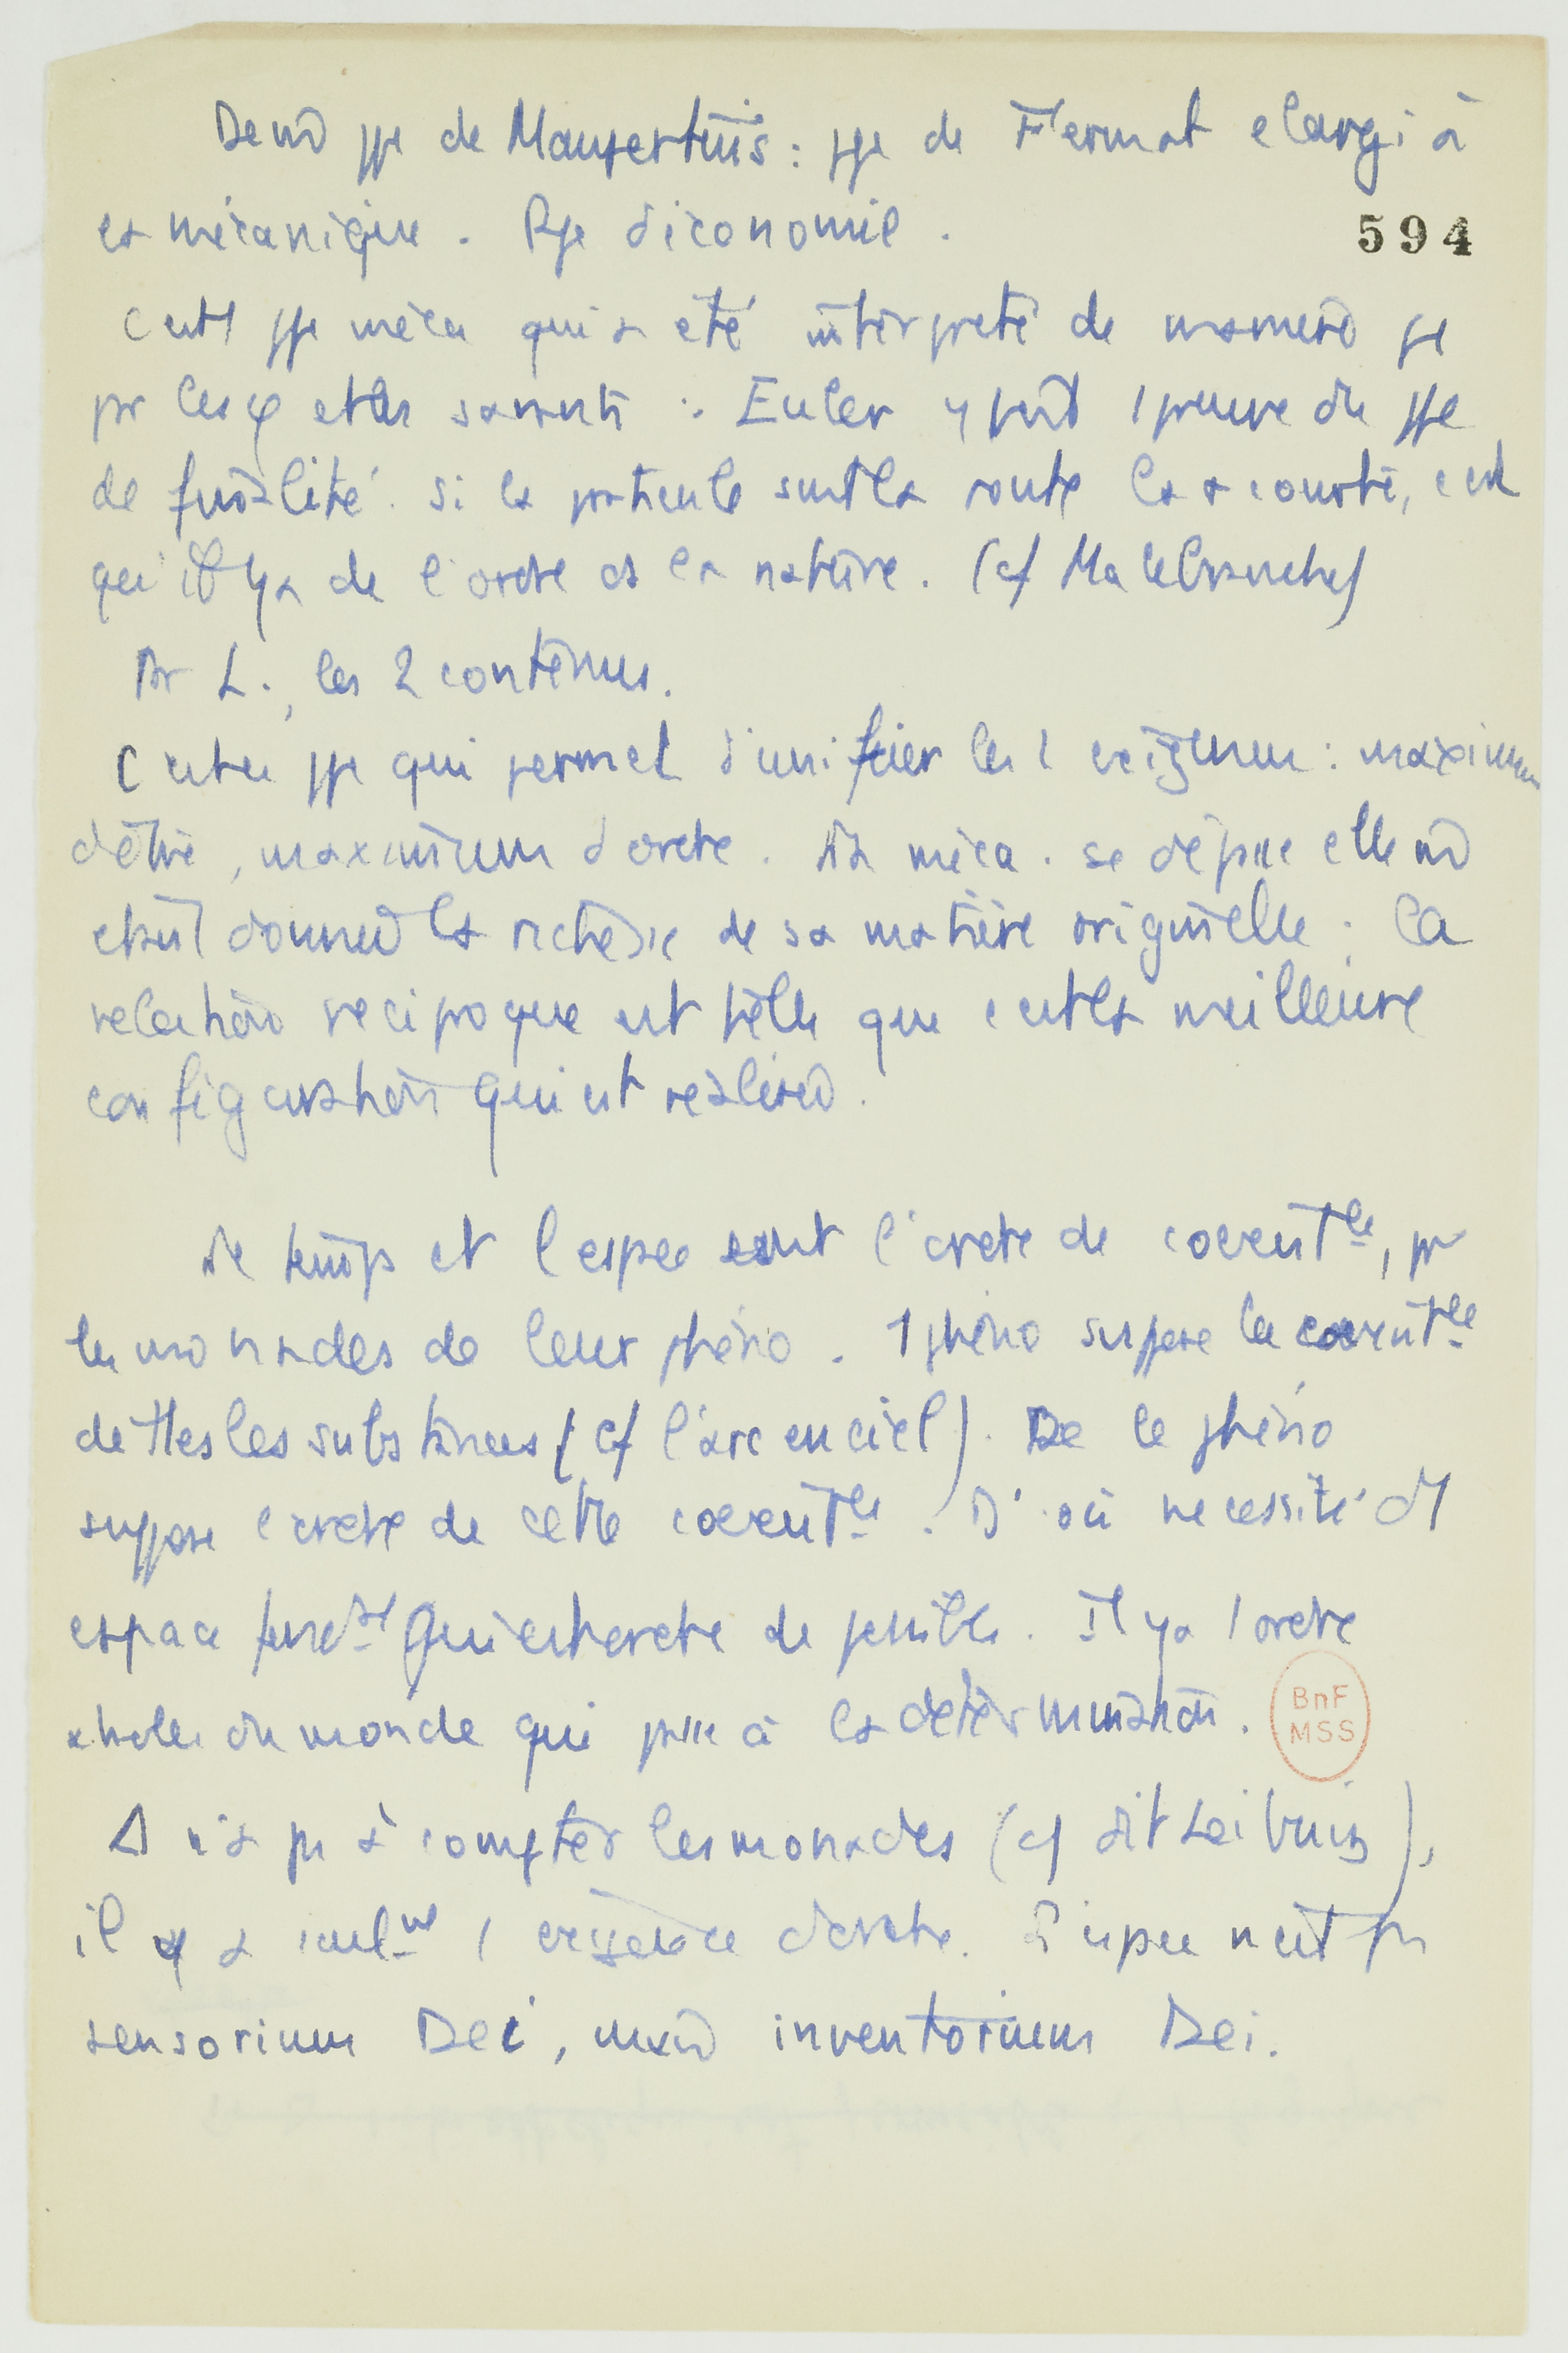 ppe de Maupertuis : ppe de Fermat elargi à
la mécanique. Ppe d'économie.
594
c'est 1 ppe méca qui a été interprété de manière
pr les φ et les savants : Euler y voit 1 preuve du ppe
de finalité. si la particule suit la route la + courte, c'est
qu'il y a de l'ordre ds la nature. (cf Malebranche)
Pr L., les 2 contenus.
C'est ce ppe qui permet d'unifier les 2 exigences : maximum
d'être, maximum d'ordre. La méca. se dépasse elle m̂
et veut donner la richesse de sa matière originelle ; la
relation réciproque est telle que c'est la meilleure
configuration qui est réalisée.
Le temps et l'espace sont l'ordre de coexistce, pr
les monades de leur phéno. 1 phéno suppose la coexistce
de ttes les substances (cf l'arc en ciel). De le phéno
suppose l'ordre de cette coexistce. D'où nécessité d'1
espace qui est ordre de possibles. Il y a 1 ordre
du monde qui passe à la détermination.
Δ n'a pas à compter les monades (cf dit Leibniz),
il y a seulmt 1 exigence d'ordre. L'espace n'est pas
sensorium Dei, mais inventorium Dei.
BnF
MSS